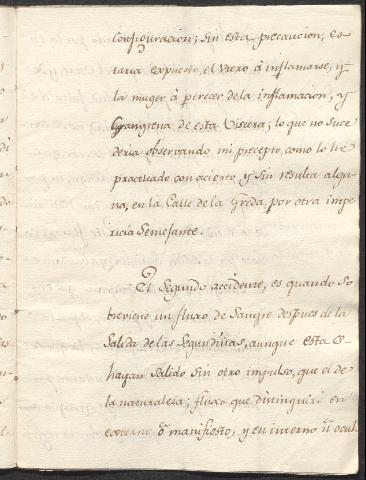 configuracion; sin esta precaucion, es-
taria expuesto el Utero à inflamarse, y
la muger à perecer de la inflamacion, y
Grangrena de esta Viscera; lo que no suce
deria observando mi precepto, como lo he
practicado con acierto, y sin resulta algu
na, en la Calle de la Greda por otra impe
ricia Semejante.
El Segundo accidente, es quando so
breviene un fluxo de Sangre despues de la
Salida de las Segundinas, aunque esta
hayan Salido sin otro impulso, que el de
la naturaleza; fluxo que distinguiré en
externo, ò manifiesto, y en interno ù ocul